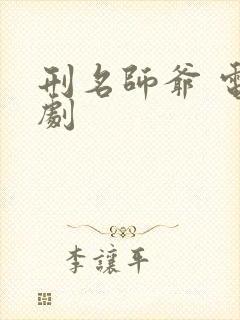 刑名師爺 電
劇
李讓平